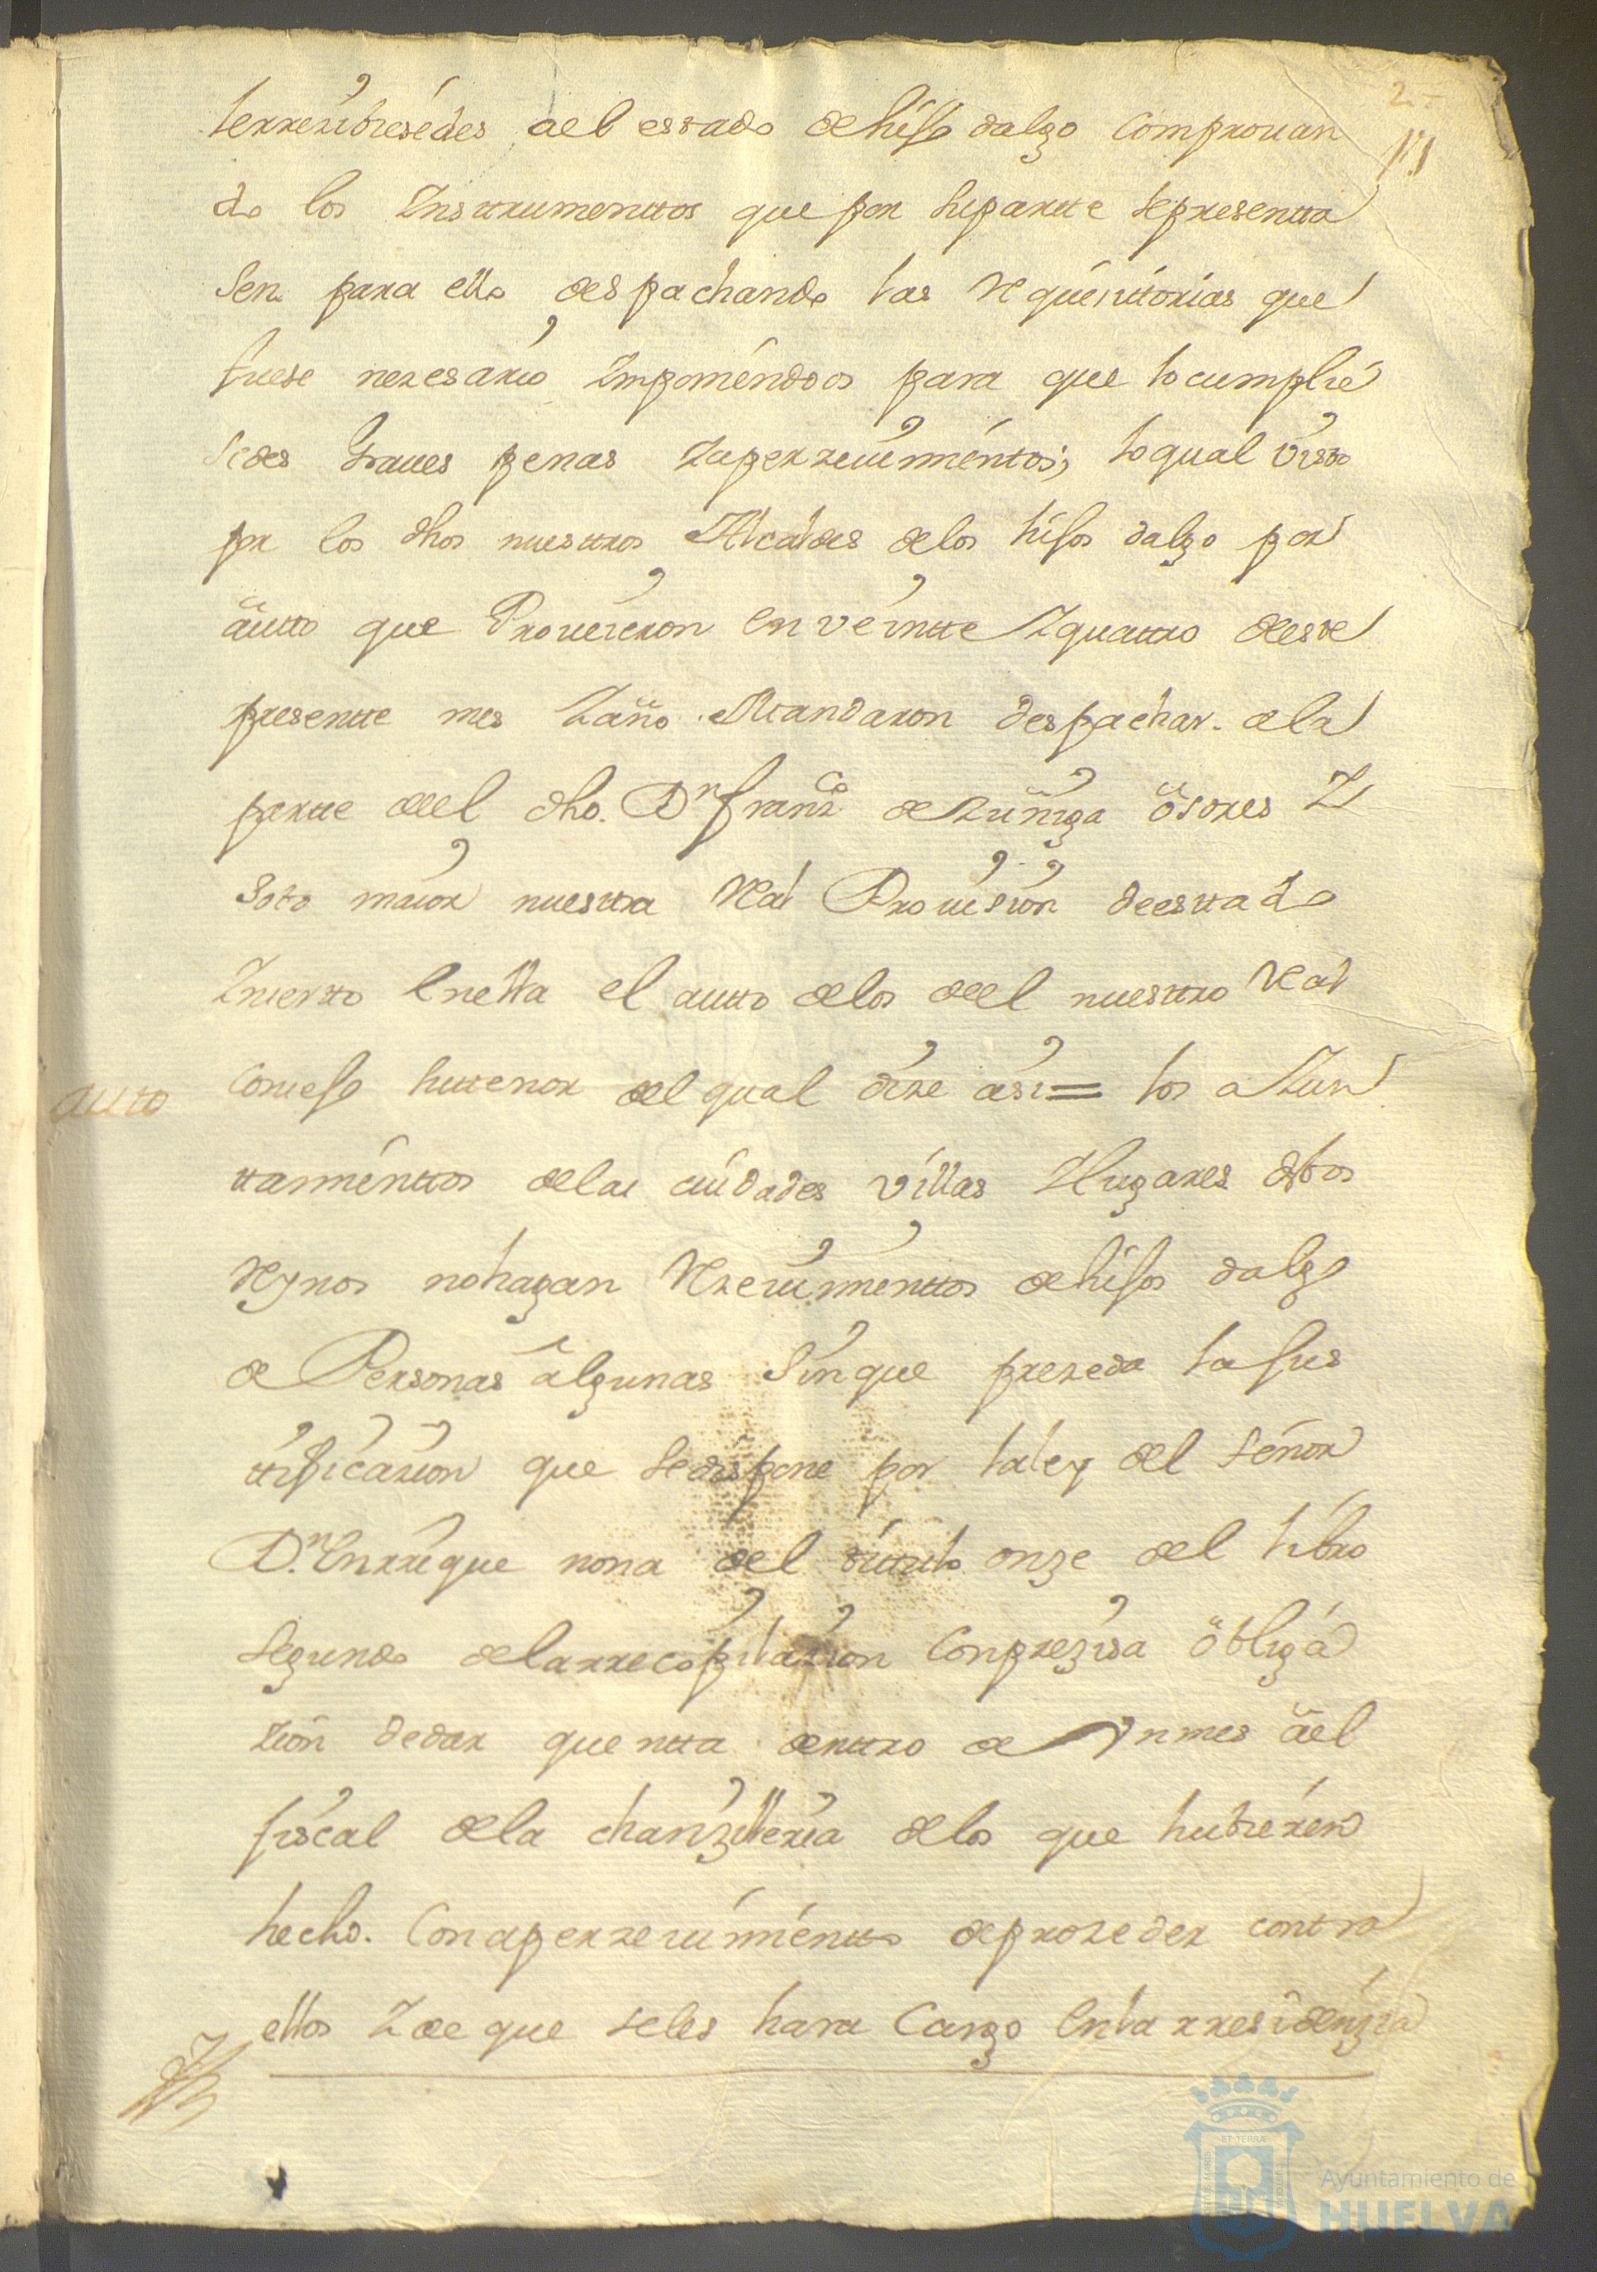 2
le rrezibiesedes ael estado de hijo dalgo Comprouan
do los Ynsttrumenttos que por su partte se presentta
sen para ello despachando las Requisittorias que
fuese nezesario Ymponiendoos para que lo cumplie
sedes Graues penas Yaperzeuimientos; lo qual visto
por los dhos nuesttros Alcaldes de los hijos dalgo por
autto que Proueieron En veintte Yquattro deeste
presentte mes Yaño Mandaron despachar a la
partte deel dho. Dn franco de Zuñiga osores Y
Soto maior nuesttra Real Prouision deesttado
Ynserto Enella el autto de los deel nuesttro Real
auto
Consejo su tenor del qual dize asi = los aYun
ttamienttos de las ciudades villas Ylugares destos
Reynos no hagan Rezeuimienttos de hijos dalgo
de Personas algunas Sin que prezeda la Jus
ttificazion que se dispone por la ley del Señor
Dn Enrrique nona del titulo onze del libro
Segundo de la rrecopilazion Con prezisa obliga
zion de dar quentta denttro de Vn mes ael
fiscal de la chanzilleria de los que hubieren
hecho. Con aperzeuimientto de prozeder contra
ellos Y de que se les hara Cargo En la rresidenzia
Ayuntamiento de
HUELVA